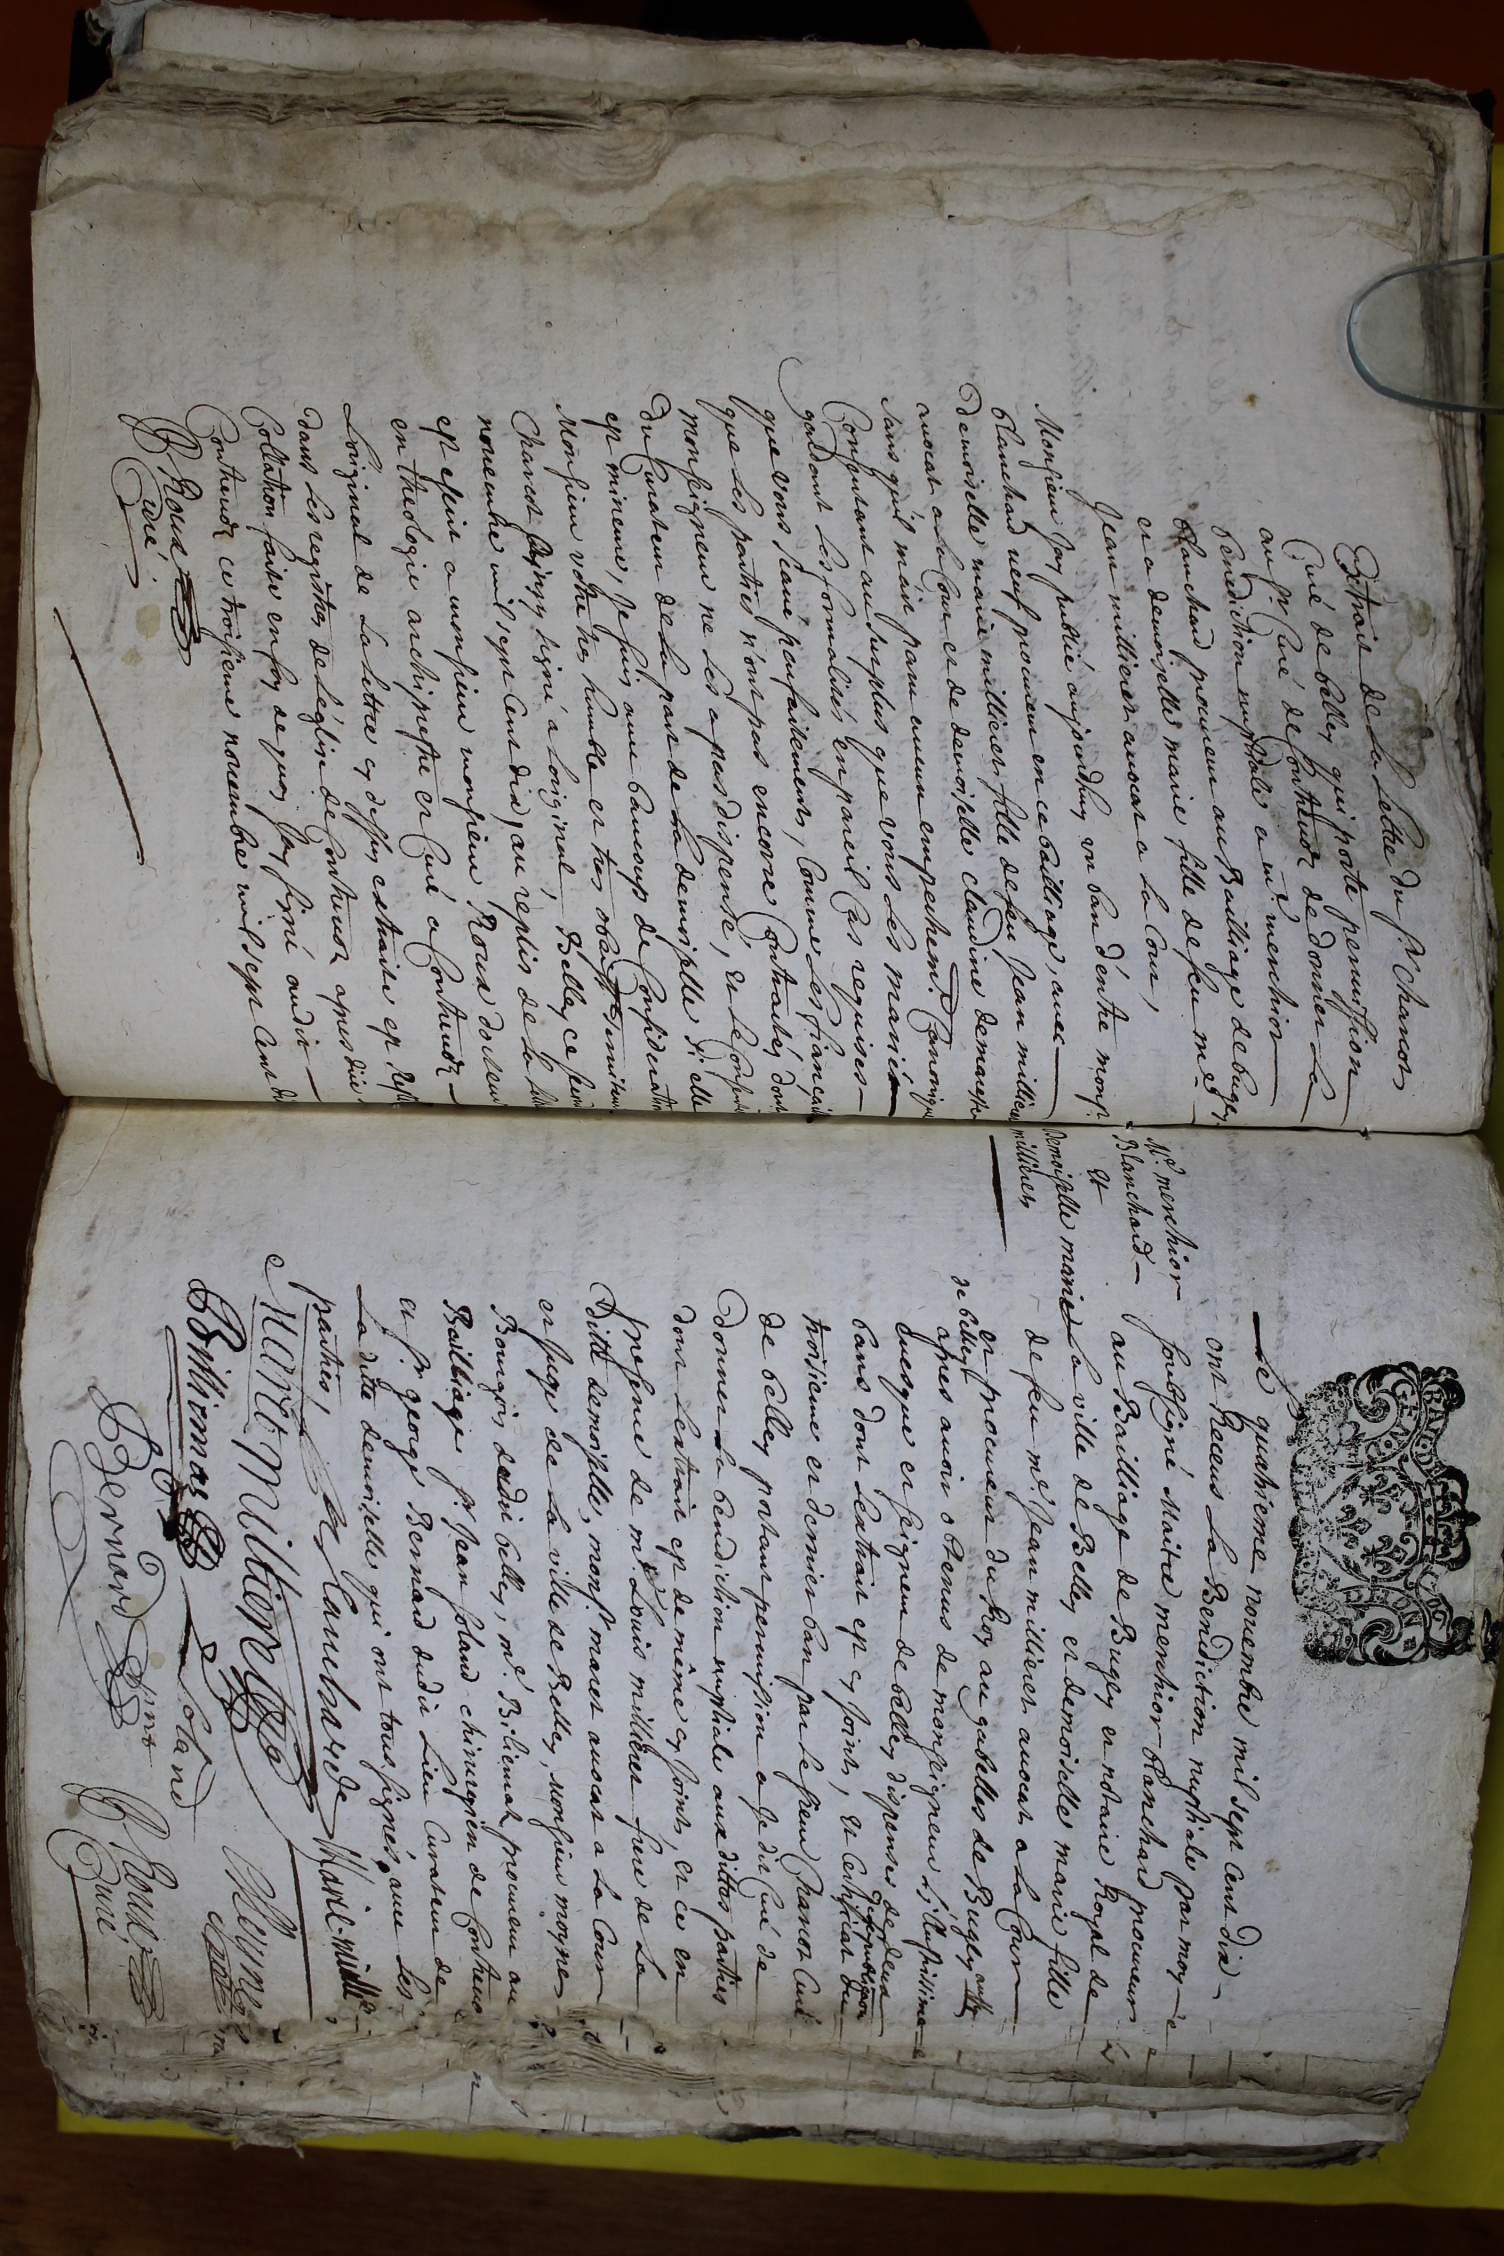 Extrait de la lettre du sr. Chanot
Curé de belley qui porte permission
au sr. Curé de Contrevoz de donner la
benediction nuptiale a mr. merchior
blanchard procureur au Bailliage de bugey
et a demoiselle marie fille de feu me.
Jean millieret avocat a la Cour,
Monsieur Jay publié aujourdhuy un ban d'entre monsr.
blanchard neuf procureur en ce bailliage, avec
Demoiselle marie millieret fille de feu Jean millieret
avocat a la Cour et de demoiselle claudine demarest
sans qu'il m'ait paru aucun empechemt. Canonique
Consentant au surplus que vous les mariés
gardant les formalités en pareil Cas requises
que vous scavé parfaitement, comme les fiançailles
que les parties n'ont pas encore Contracté, dont
monseigneur ne les a pas dispensé, et le Consente
du Curateur de la part de la demoiselle si elle
est mineure, Je suis avec baucoup de Consideration
Monsieur votre tres humble et tres obeisst. serviteur
Chanot signé a loriginal, Belley ce
novembre mil sept Cent dix, au replis de la lettre
est escrit a monsieur monsieur Roux docteur
en theologie archiprestre et Curé a Contrevoz
Loriginal de la lettre cy dessus extraite est
dans les registres de léglise de Contrevoz apres düe
Collation faite en foy de quoy Jay signé audit
Contrevoz ce troisieme novembre mil sept Cent dix
Roux
Curé
GENERALITE DE DIJON
Me. merchior
Blanchard
Et
Demoiselle marie
millieret
Le quatrieme novembre mil sept Cent dix
ont Receus la Benediction nuptiale par moy
soubsigné Maitre merchior blanchard procureur
au Bailliage de Bugey et notaire Royal de
la ville de Belley et demoiselle marie fille
de feu me. Jean millieret avocat a la Cour
et procureur du Roy au gabelles de Bugey
de belley
apres avoir obtenus de monseigneur L'illustrissime
Evesque et seigneur de belley dispense de deux
bans dont lextrait est cy joint, et Certificat du
de la publication
troisieme et dernier ban par le sieur Chanot Curé
de belley portant permission a Je dit Curé de
donner la benediction nuptiale aux dittes parties
dont lextrait est de même cy joint, et ce en
presence de me. Louis millieret frere de la
Ditte demoiselle, monsr. maret avocat a la Cour
et Juge de la ville de Belley, monsieur moyne
Bourgois dudit belley, me. Biliemaz procureur au
Bailliage sr. Jean soland chirurgien de Contrevoz
et sr. george Bernard dudit lieu Curateur de
La dite demoiselle qui ont tous signés avec les
parties,
Blanchard
Marie milliere
Maret
Millieret
Moyne
Billiemaz
Soland
G Bernard
Roux
Curé